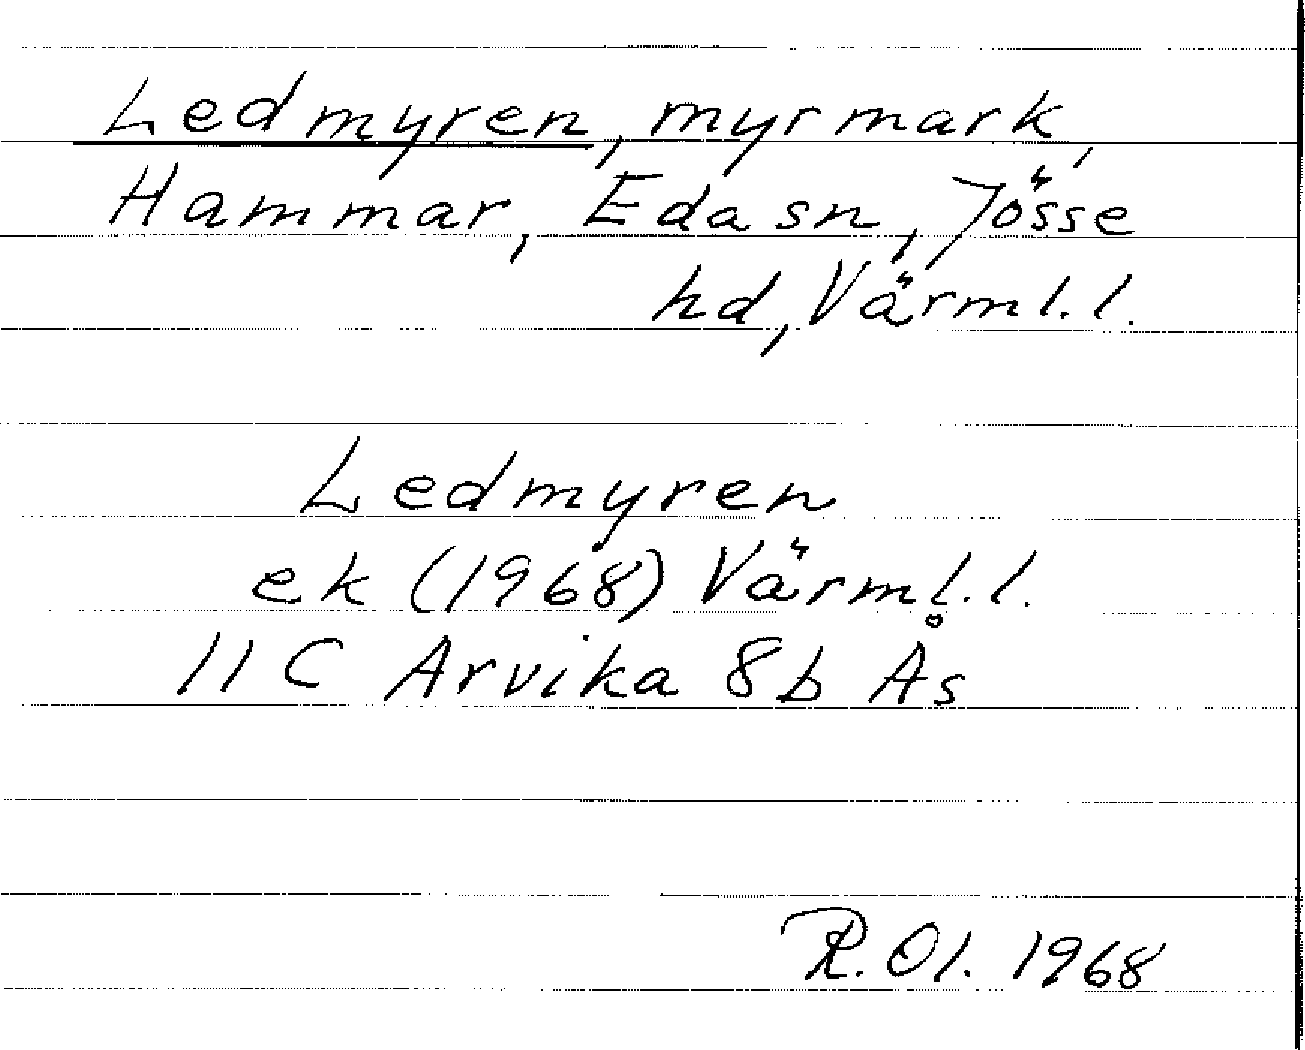 Ledmyren, myrmark,
Hammar, Eda sn, Jösse
hd, Värml. l.
Ledmyren
ek (1968) Värml. l.
11 C Arvika 8b Ås
R. Ol. 1968